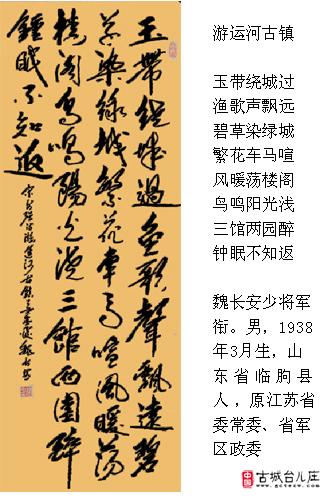 玉帶绕城過渔歌聲飘遠碧
草染绿城繁花車马喧風暖荡
楼阁鸟鳴陽光浅三館两園醉
鍾眠不知返
游运河古镇
玉带绕城过
渔歌声飘远
碧草染绿城
繁花车马喧
风暖荡楼阁
鸟鸣阳光浅
三馆两园醉
钟眠不知返
魏长安少将军
衔。男，1938
年3月生，山
东省临朐县
人，原江苏省
委常委、省军
区政委
中国
古城台儿庄